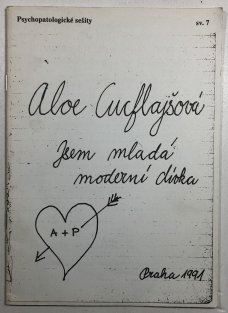 Psychopatologické sešity sv. 7
Aloe Cucflajšová
Jsem mladá
moderní dívka
A + P
Praha 1991